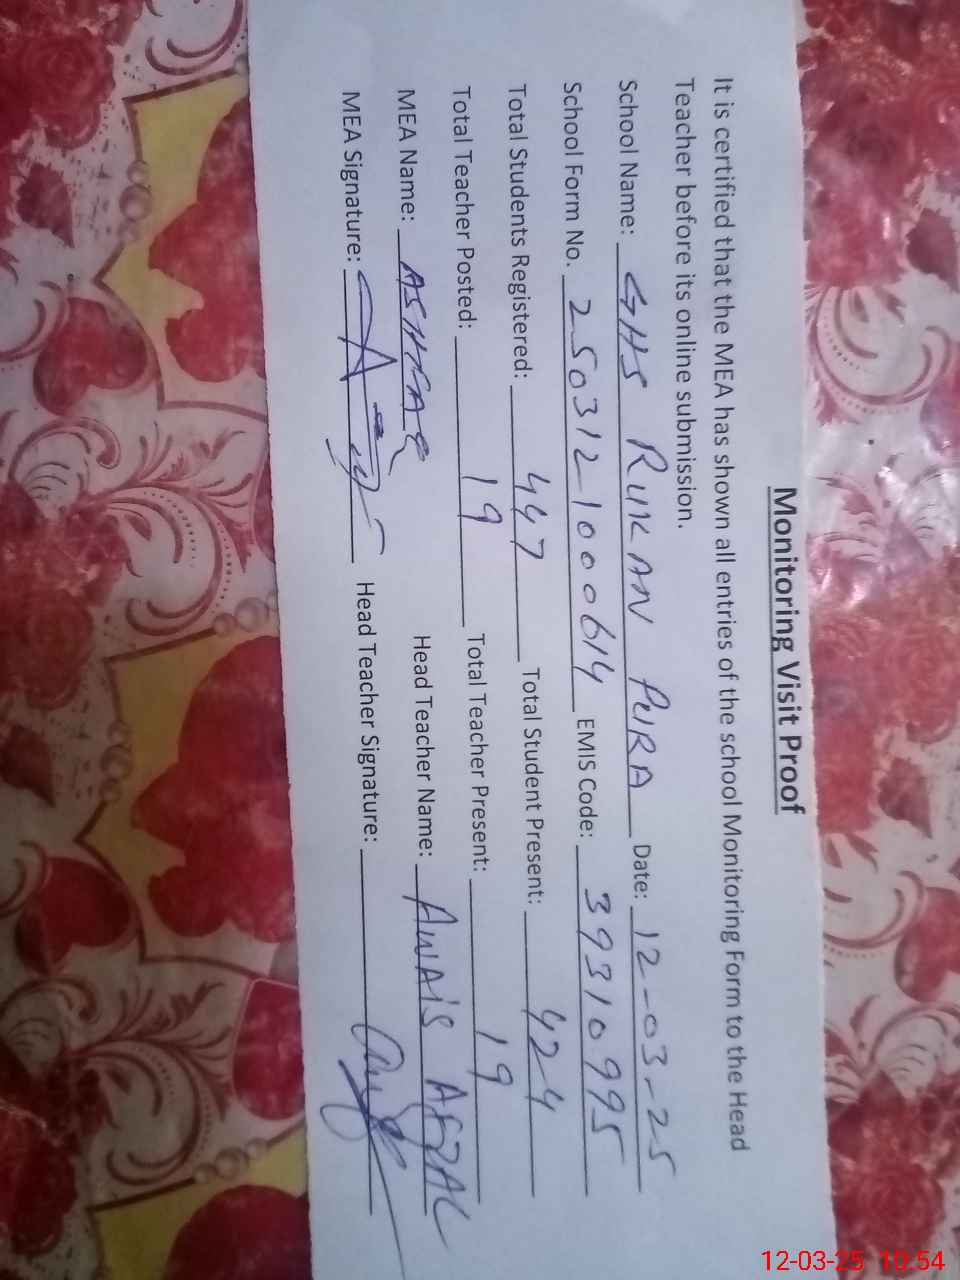 Monitoring Visit Proof
It is certified that the MEA has shown all entries of the school Monitoring Form to the Head
Teacher before its online submission.
School Name: GHS RUKAN PURA Date: 12-03-25
School Form No. 2503121000614 EMIS Code: 39310995
Total Students Registered: 447 Total Student Present: 424
Total Teacher Posted: 19 Total Teacher Present: 19
MEA Name: ASHFAQ Head Teacher Name: AWAIS AFZAL
MEA Signature: Head Teacher Signature:
12-03-25 10:54